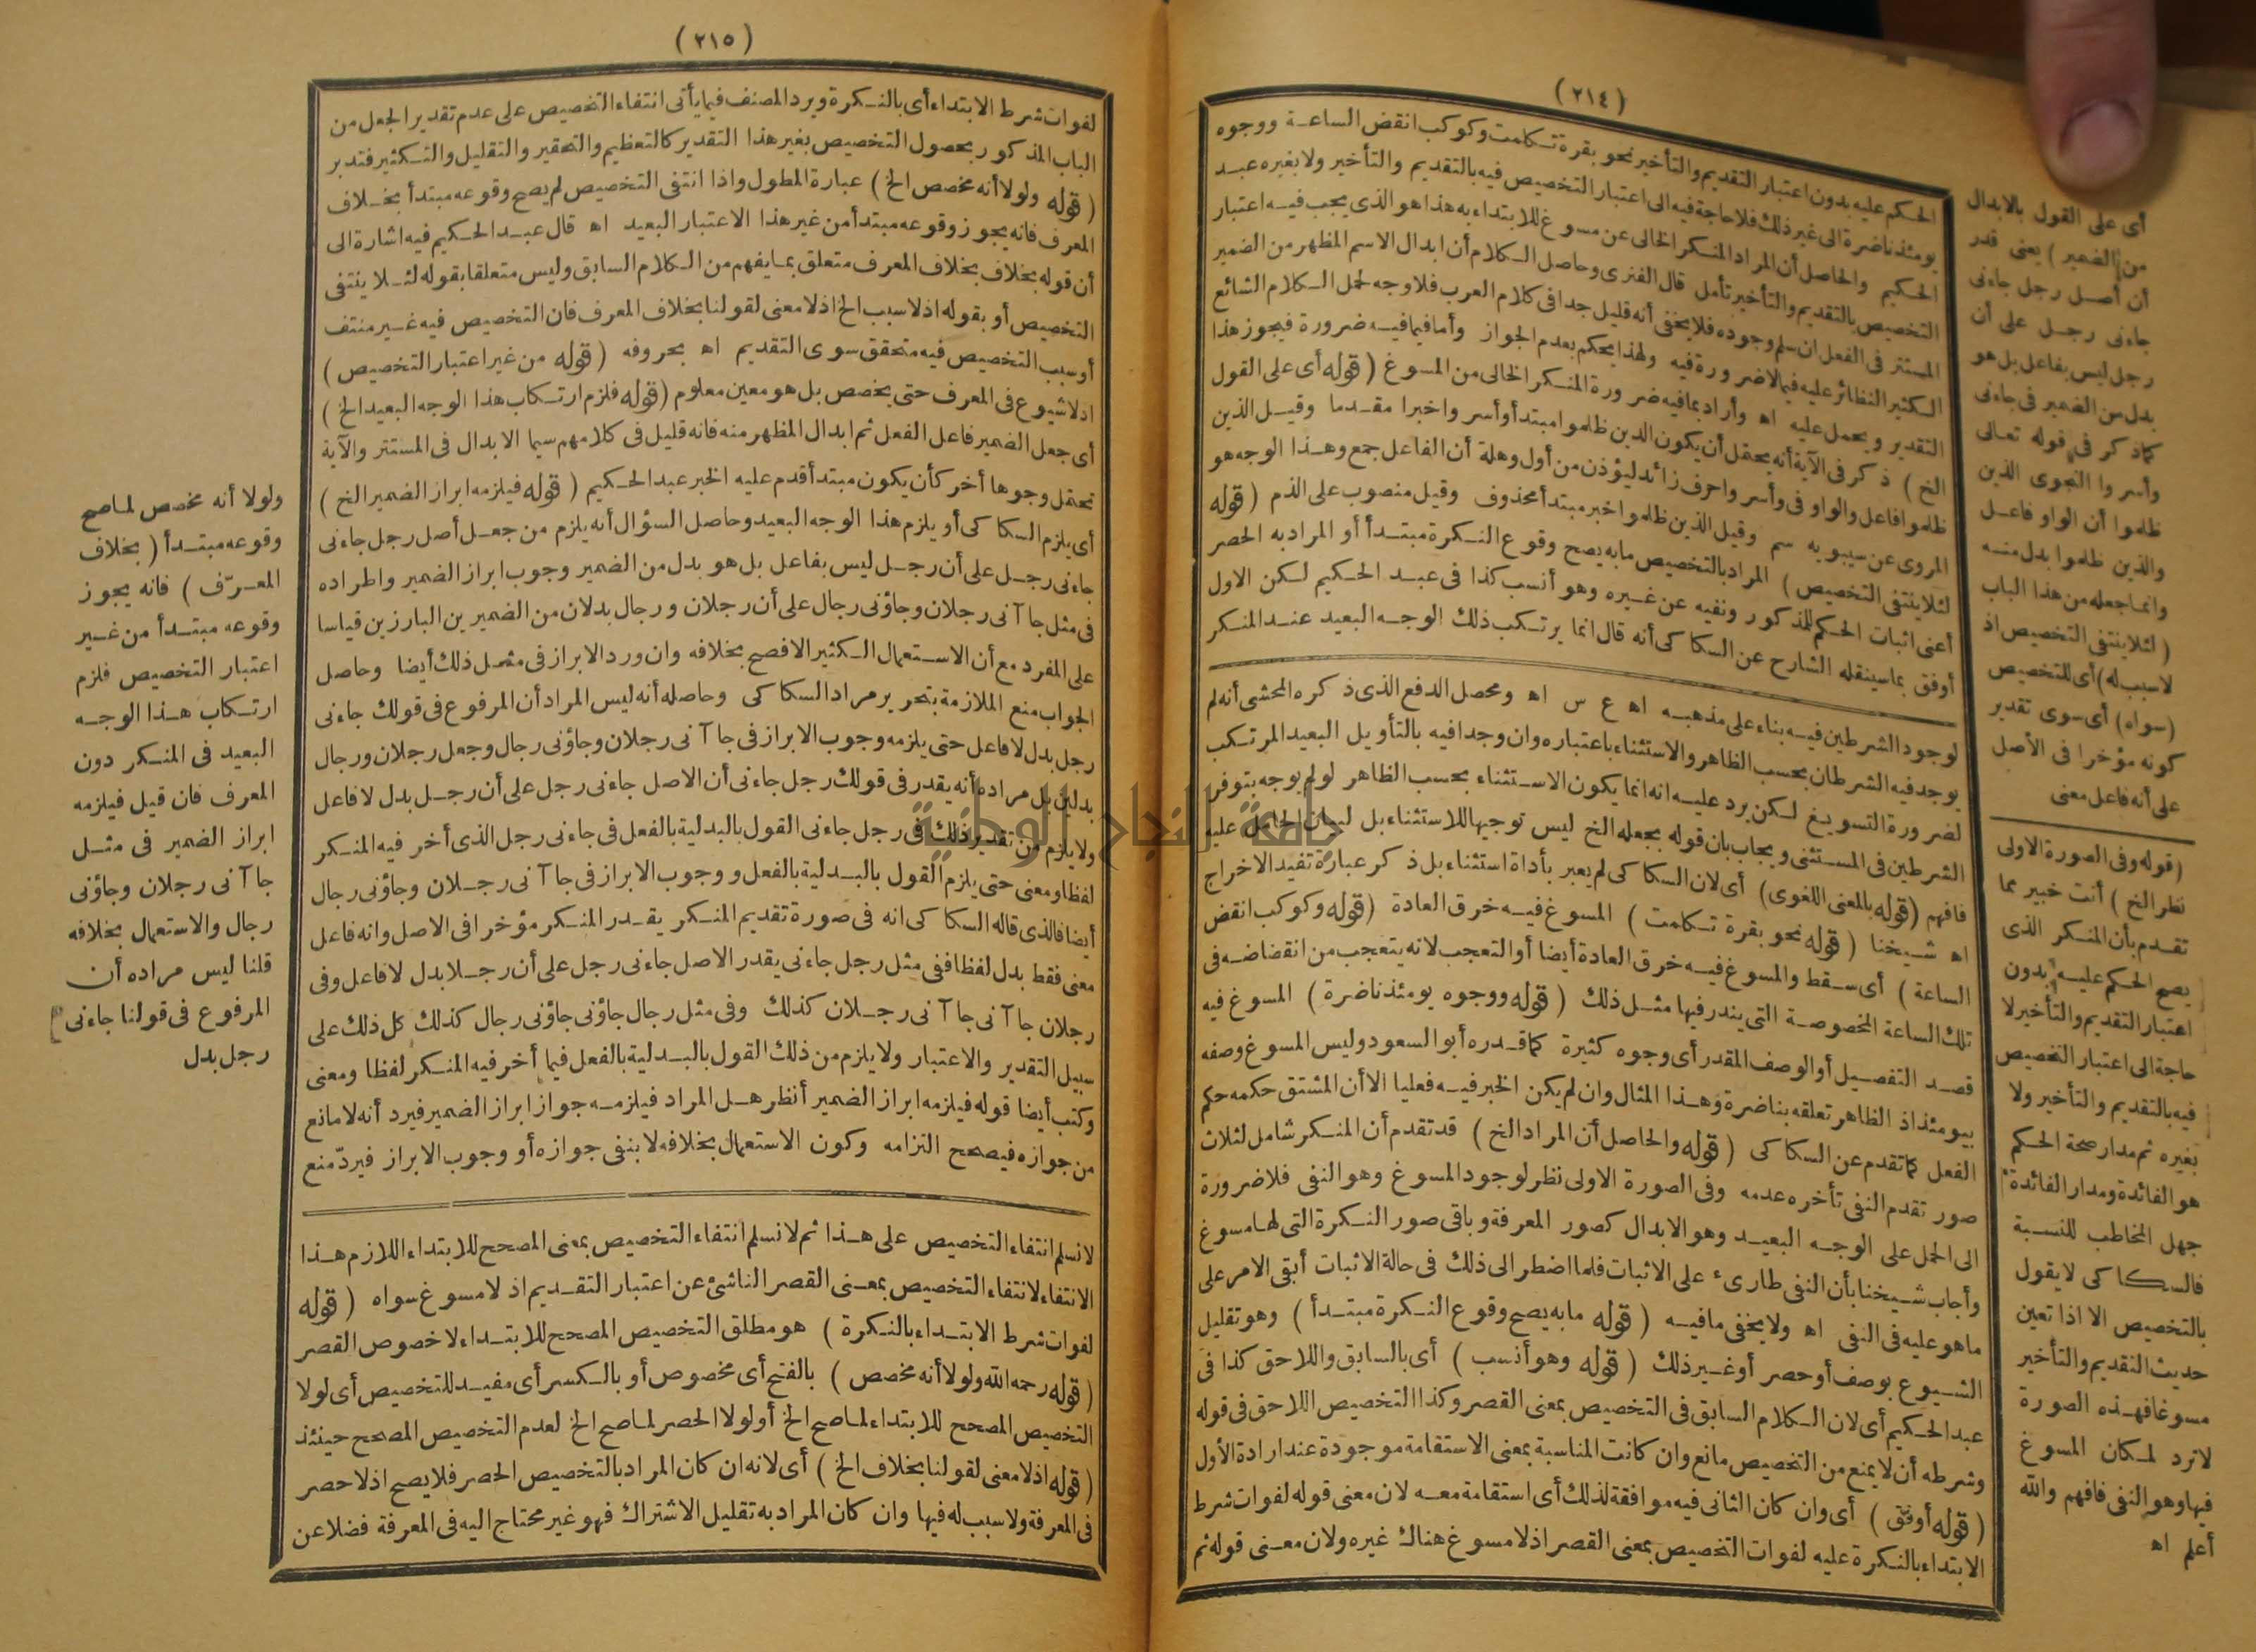 (٢١٤)
الحكم عليه بدون اعتبار التقديم والتأخير نحو بقرة تكلمت وكوكب انقض الساعة ووجوه
يومئذ ناضرة الى غير ذلك فلا حاجة فيه الى اعتبار التخصيص فيه بالتقديم والتأخير ولا بغيره عبد
الحكيم والحاصل أن المراد المنكر الخالى عن مسوغ للابتداء به هذا هو الذى يجب فيه اعتبار
التخصيص بالتقديم والتأخير تأمل قال الفنرى وحاصل الكلام أن ابدال الاسم المظهر من الضمير
المستتر فى الفعل ان سلم وجوده فلا يخفى أنه قليل جدا فى كلام العرب فلا وجه لحمل الكلام الشائع
الكثير النظائر عليه فيما لا ضرورة فيه ولهذا يحكم بعدم الجواز وأما فيما فيه ضرورة فيجوز هذا
التقدير ويحمل عليه اه وأراد بما فيه ضرورة المنكر الخالى من المسوغ (قوله أى على القول
الخ) ذكر فى الآية أنه يحتمل أن يكون الذين ظلموا مبتدأ وأسروا خبرا مقدما وقيل الذين
ظلموا فاعل والواو فى وأسروا حرف زائد ليؤذن من أول وهلة أن الفاعل جمع وهذا الوجه هو
المروى عن سيبويه سم وقيل الذين ظلموا خبر مبتدأ محذوف وقيل منصوب على الذم (قوله
لئلا ينتفى التخصيص) المراد بالتخصيص ما به يصح وقوع النكرة مبتدأ أو المراد به الحصر
أعنى اثبات الحكم للمذكور ونفيه عن غيره وهو أنسب كذا فى عبد الحكيم لكن الاول
أوفق بما سينقله الشارح عن السكاكى أنه قال انما يرتكب ذلك الوجه البعيد عند المنكر
لوجود الشرطين فيه بناء على مذهبه اه ع س اه ومحصل الدفع الذى ذكره المحشى أنه لم
يوجد فيه الشرطان بحسب الظاهر والاستثناء باعتباره وان وجدا فيه بالتأويل البعيد المرتكب
لضرورة التسويغ لكن يرد عليه انه انما يكون الاستثناء بحسب الظاهر لو لم يوجه بتوفر
الشرطين فى المستثنى ويجاب بان قوله بجعله الخ ليس توجيها للاستثناء بل لبيان الحامل عليه
فافهم (قوله بالمعنى اللغوى) أى لان السكاكى لم يعبر بأداة استثناء بل ذكر عبارة تفيد الاخراج
اه شيخنا (قوله نحو بقرة تكلمت) المسوغ فيه خرق العادة (قوله وكوكب انقض
الساعة) أى سقط والمسوغ فيه خرق العادة أيضا أو التعجب لانه يتعجب من انقضاضه فى
تلك الساعة المخصوصة التى يندر فيها مثل ذلك (قوله ووجوه يومئذ ناضرة) المسوغ فيه
قصد التفصيل أو الوصف المقدر أى وجوه كثيرة كما قدره أبو السعود وليس المسوغ وصفه
بيومئذ اذ الظاهر تعلقه بناضرة وهذا المثال وان لم يكن الخبر فيه فعليا الا أن المشتق حكمه حكم
الفعل كما تقدم عن السكاكى (قوله والحاصل أن المراد الخ) قد تقدم أن المنكر شامل لثلاث
صور تقدم النفى تأخره عدمه وفى الصورة الاولى نظر لوجود المسوغ وهو النفى فلا ضرورة
الى الحمل على الوجه البعيد وهو الابدال كصور المعرفة وباقى صور النكرة التى لها مسوغ
وأجاب شيخنا بأن النفى طارىء على الاثبات فلما اضطر الى ذلك فى حالة الاثبات أبقى الامر على
ما هو عليه فى النفى اه ولا يخفى ما فيه (قوله ما به يصح وقوع النكرة مبتدأ) وهو تقليل
الشيوع بوصف أو حصر أو غير ذلك (قوله وهو أنسب) أى بالسابق واللاحق كذا فى
عبد الحكيم أى لان الكلام السابق فى التخصيص بمعنى القصر وكذا التخصيص اللاحق فى قوله
وشرطه أن لا يمنع من التخصيص مانع وان كانت المناسبة بمعنى الاستقامة موجودة عند ارادة الأول
(قوله أوفق) أى وان كان الثانى فيه موافقة لذلك أى استقامة معه لان معنى قوله لفوات شرط
الابتداء بالنكرة عليه لفوات التخصيص بمعنى القصر اذ لا مسوغ هناك غيره ولان معنى قوله ثم
أى على القول بالابدال
من الضمير) يعنى قدر
أن أصل رجل جاءنى
جاءنى رجل على أن
رجل ليس بفاعل بل هو
بدل من الضمير فى جاءنى
كما ذكر فى قوله تعالى
وأسروا النجوى الذين
ظلموا أن الواو فاعل
والذين ظلموا بدل منه
وانما جعله من هذا الباب
(لئلا ينتفى التخصيص اذ
لا سبب له) أى للتخصيص
(سواه) أى سوى تقدير
كونه مؤخرا فى الأصل
على أنه فاعل معنى
(قوله وفى الصورة الاولى
نظر الخ) أنت خبير مما
تقدم بأن المنكر الذى
يصح الحكم عليه بدون
اعتبار التقديم والتأخير لا
حاجة الى اعتبار التخصيص
فيه بالتقديم والتأخير ولا
بغيره ثم مدار صحة الحكم
هو الفائدة ومدار الفائدة
جهل المخاطب للنسبة
فالسكاكى لا يقول
بالتخصيص الا اذا تعين
حديث التقديم والتأخير
مسوغا فهذه الصورة
لا ترد لمكان المسوغ
فيها وهو النفى فافهم والله
أعلم اه
(٢١٥)
لفوات شرط الابتداء أى بالنكرة ويرد المصنف فيما يأتى انتفاء التخصيص على عدم تقدير الجعل من
الباب المذكور بحصول التخصيص بغير هذا التقدير كالتعظيم والتحقير والتقليل والتكثير فتدبر
(قوله ولولا أنه مخصص الخ) عبارة المطول واذا انتفى التخصيص لم يصح وقوعه مبتدأ بخلاف
المعرف فانه يجوز وقوعه مبتدأ من غير هذا الاعتبار البعيد اه قال عبد الحكيم فيه اشارة الى
أن قوله بخلاف بخلاف المعرف متعلق بما يفهم من الكلام السابق وليس متعلقا بقوله لئلا ينتفى
التخصيص أو بقوله اذ لا سبب الخ اذ لا معنى لقولنا بخلاف المعرف فان التخصيص فيه غير منتف
أو سبب التخصيص فيه متحقق سوى التقديم اه بحروفه (قوله من غير اعتبار التخصيص)
اذ لا شيوع فى المعرف حتى يخصص بل هو معين معلوم (قوله فلزم ارتكاب هذا الوجه البعيد الخ)
أى جعل الضمير فاعل الفعل ثم ابدال المظهر منه فانه قليل فى كلامهم سيما الابدال فى المستتر والآية
تحتمل وجوها أخر كأن يكون مبتدأ قدم عليه الخبر عبد الحكيم (قوله فيلزمه ابراز الضمير الخ)
أى يلزم السكاكى أو يلزم هذا الوجه البعيد وحاصل السؤال أنه يلزم من جعل أصل رجل جاءنى
جاءنى رجل على أن رجل ليس بفاعل بل هو بدل من الضمير وجوب ابراز الضمير واطراده
فى مثل جاآنى رجلان وجاؤنى رجال على أن رجلان ورجال بدلان من الضميرين البارزين قياسا
على المفرد مع أن الاستعمال الكثير الافصح بخلافه وان ورد الابراز فى مثل ذلك أيضا وحاصل
الجواب منع الملازمة بتحرير مراد السكاكى وحاصله أنه ليس المراد أن المرفوع فى قولك جاءنى
رجل بدل لا فاعل حتى يلزمه وجوب الابراز فى جاآنى رجلان وجاؤنى رجال وجعل رجلان ورجال
بدلين بل مراده أنه يقدر فى قولك رجل جاءنى أن الاصل جاءنى رجل على أن رجل بدل لا فاعل
ولا يلزم من تقدير ذلك فى رجل جاءنى القول بالبدلية بالفعل فى جاءنى رجل الذى أخر فيه المنكر
لفظا ومعنى حتى يلزم القول بالبدلية بالفعل ووجوب الابراز فى جاآنى رجلان وجاؤنى رجال
أيضا فالذى قاله السكاكى انه فى صورة تقديم المنكر يقدر المنكر مؤخرا فى الاصل وانه فاعل
معنى فقط بدل لفظا ففى مثل رجل جاءنى يقدر الاصل جاءنى رجل على أن رجلا بدل لا فاعل وفى
رجلان جاآنى جاآنى رجلان كذلك وفى مثل رجال جاؤنى جاؤنى رجال كذلك كل ذلك على
سبيل التقدير والاعتبار ولا يلزم من ذلك القول بالبدلية بالفعل فيما أخر فيه المنكر لفظا ومعنى
وكتب أيضا قوله فيلزمه ابراز الضمير أنظر هل المراد فيلزمه جواز ابراز الضمير فيرد أنه لا مانع
من جوازه فيصحح التزامه وكون الاستعمال بخلافه لا ينفى جوازه أو وجوب الابراز فيرد منع
لا نسلم انتفاء التخصيص على هذا ثم لا نسلم انتفاء التخصيص بمعنى المصحح للابتداء اللازم هذا
الانتفاء لانتفاء التخصيص بمعنى القصر الناشئ عن اعتبار التقديم اذ لا مسوغ سواه (قوله
لفوات شرط الابتداء بالنكرة) هو مطلق التخصيص المصحح للابتداء لا خصوص القصر
(قوله رحمه الله ولولا أنه مخصص) بالفتح أى مخصوص أو بالكسر أى مفيد للتخصيص أى لولا
التخصيص المصحح للابتداء لما صح الخ أو لولا الحصر لما صح الخ لعدم التخصيص المصحح حينئذ
(قوله اذ لا معنى لقولنا بخلاف الخ) أى لانه ان كان المراد بالتخصيص الحصر فلا يصح اذ لا حصر
فى المعرفة ولا سبب له فيها وان كان المراد به تقليل الاشتراك فهو غير محتاج اليه فى المعرفة فضلا عن
ولولا أنه مخصص لما صح
وقوعه مبتدأ (بخلاف
المعرّف) فانه يجوز
وقوعه مبتدأ من غير
اعتبار التخصيص فلزم
ارتكاب هذا الوجه
البعيد فى المنكر دون
المعرف فان قيل فيلزمه
ابراز الضمير فى مثل
جاآنى رجلان وجاؤنى
رجال والاستعمال بخلافه
قلنا ليس مراده أن
المرفوع فى قولنا جاءنى
رجل بدل
جامعة النجاح الوطنية